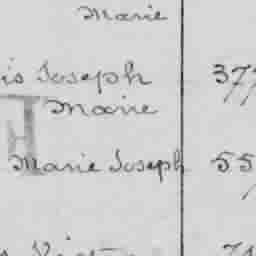 Marie
is Joseph 377
Marie
Marie Joseph 55